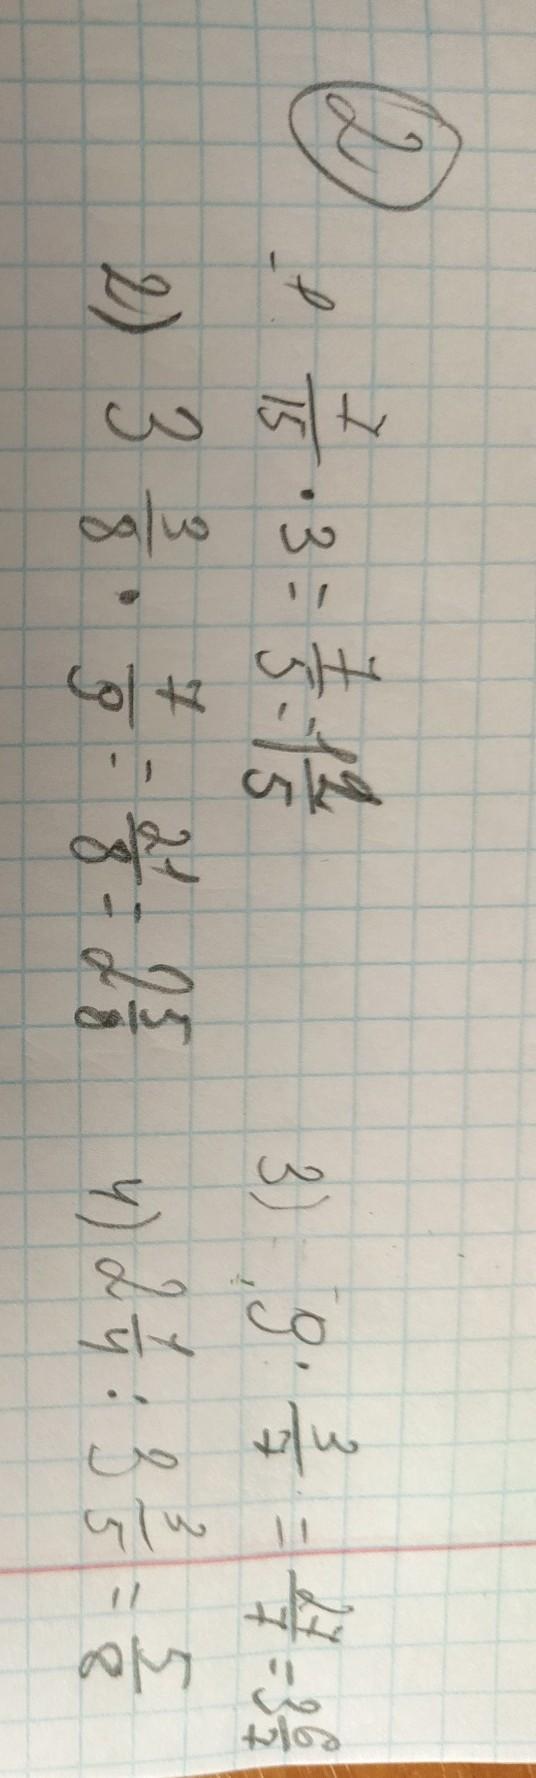 2
1 7/15 · 3 = 7/5 = 1 2/5
2) 3 3/8 · 7/9 = 21/8 = 2 5/8
3) 9 · 3/7 = 27/7 = 3 6/7
4) 2 1/4 : 3 3/5 = 5/8